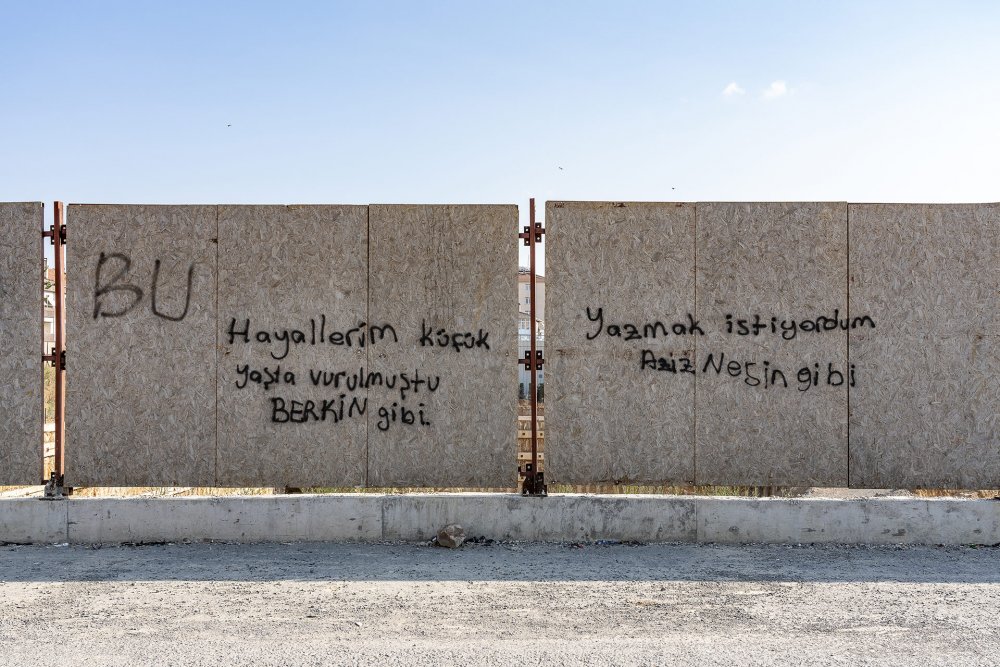 BU
Hayallerim küçük
yaşta vurulmuştu
BERKİN gibi.
Yazmak istiyordum
Aziz Nesin gibi